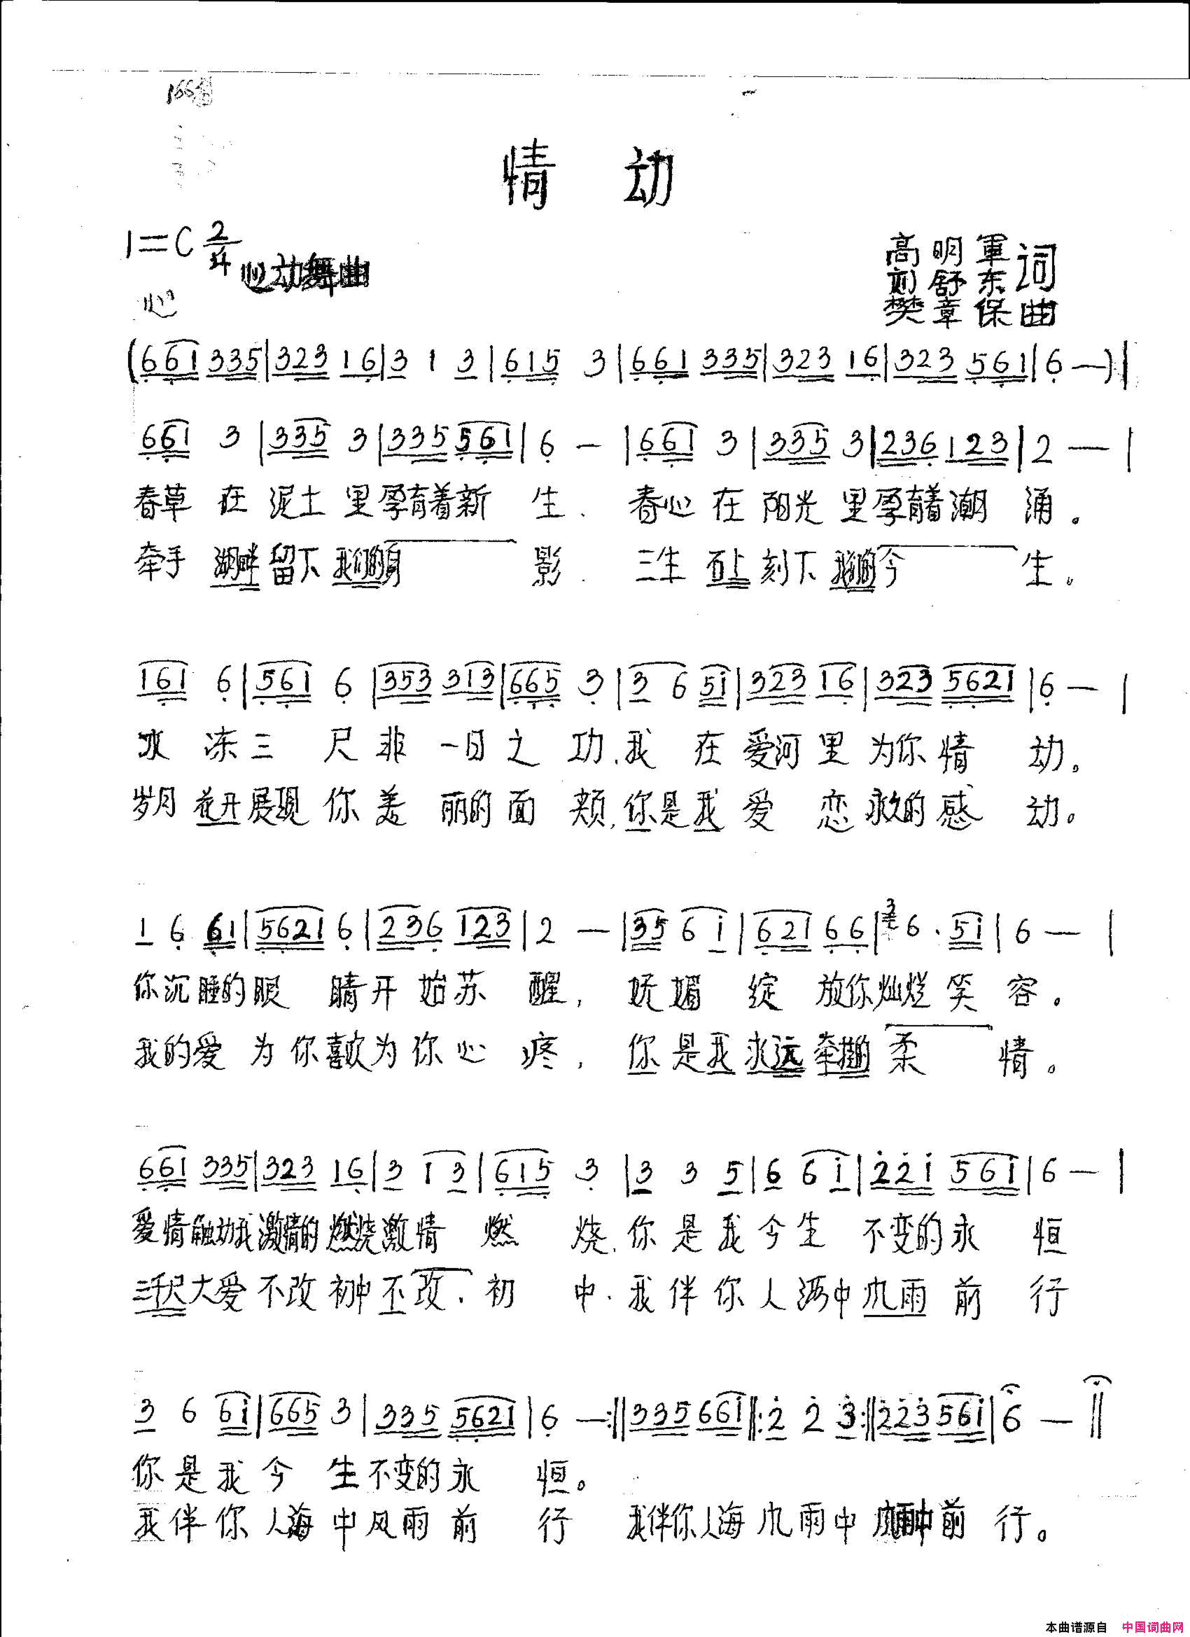 情 动
1=C 2/4
心动舞曲
高明軍
刘舒东 词
樊章保 曲
(661 335|323 16|3 1 3|615 3|661 335|323 16|323 561|6 —)|
661 3|335 3|335 561|6 —|661 3|335 3|236 123|2 —|
春草 在 泥土 里孕育着新 生. 春心在 阳光 里孕育着潮 涌。
牵手 湖畔留下 我们的身 影. 三生 石上刻下 我们的今 生。
161 6|561 6|353 313|665 3|3 6 5i|323 16|323 5621|6 —|
冰 冻三 尺 非 一日之 功,我 在 爱河里 为你情 动。
岁月 花开展现 你 美 丽的面 颊,你是我 爱 恋 永久的感 动。
1 6 61|5621 6|236 123|2 —|35 6 i|621 66|6. 5i|6 —|
你沉睡的眼 睛开始苏 醒, 妩媚 绽 放你灿烂笑 容。
我的爱 为你喜欢为你心 疼, 你是我永远牵挂的柔 情。
661 335|323 16|3 13|615 3|3 3 5|6 6i|22i 56i|6 —|
爱情触动我激情的燃烧激情 燃 烧,你是我今生 不变的永 恒
三千尺大爱不改初中不改.初 中.我伴你人海中风雨前 行
3 6 6i|665 3|335 5621|6 —:||335 66i||:2 2 3:||223 56i|6 —||
你是我今 生不变的永 恒。
我伴你人海中风雨前 行 我伴你人海风雨中风雨中前 行。
本曲谱源自 中国词曲网